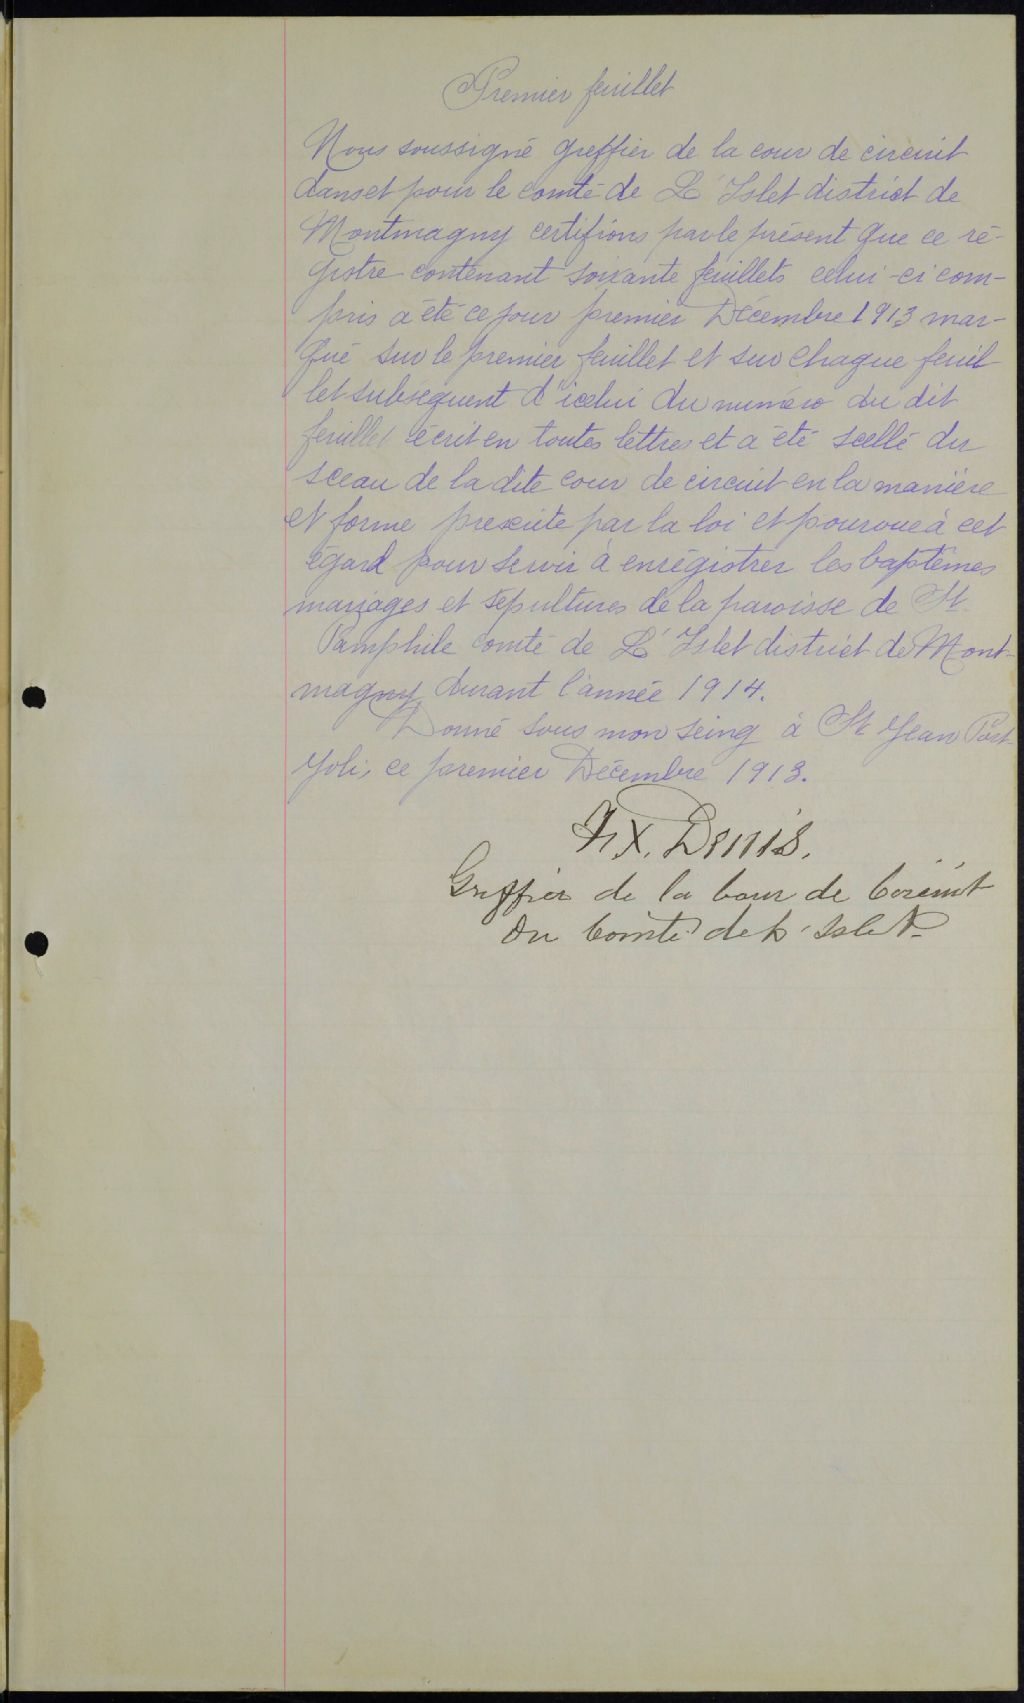 Premier feuillet
Nous soussigné greffier de la cour de circuit
dans et pour le comté de L'Islet district de
Montmagny certifions par le présent que ce ré-
gistre contenant soixante feuillets celui-ci com-
pris a été ce jour premier Décembre 1913 mar-
qué sur le premier feuillet et sur chaque feuil-
let subséquent d'icelui du numéro du dit
feuillet écrit en toutes lettres et a été scellé du
sceau de la dite cour de circuit en la manière
et forme prescrite par la loi et pourvue à cet
égard pour servir à enrégistrer les baptêmes
mariages et sépultures de la paroisse de St.
Pamphile comté de L'Islet district de Mont-
magny durant l'année 1914.
Donné sous mon seing à St Jean Port
Joli, ce premier Décembre 1913.
F. X. Denis.
Greffier de la Cour de Circuit
du Comté de L'Islet.